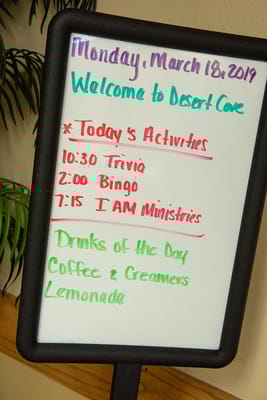 Monday, March 18, 2019
Welcome to Desert Cove
* Today's Activities
10:30 Trivia
2:00 Bingo
7:15 I AM Ministries
Drinks of the Day
Coffee & Creamers
Lemonade